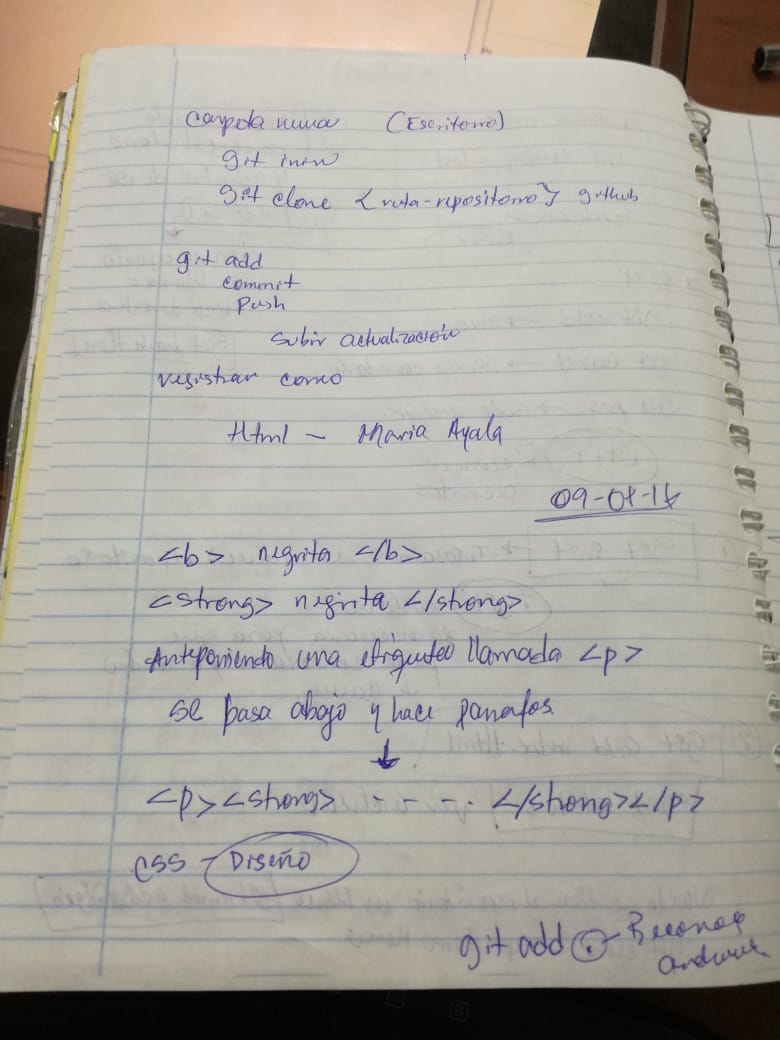 Carpeta nueva (Escritorio)
git init
git clone <ruta-repositorio> github
git add
commit
push
subir actualización
registrar como
Html - Maria Ayala
<b> negrita </b>
<strong> negrita </strong>
Anteponiendo una etiqueta llamada <p>
se pasa abajo y hace parrafos.
<p><strong> - - - . </strong></p>
CSS - Diseño
git add . - Reconoce